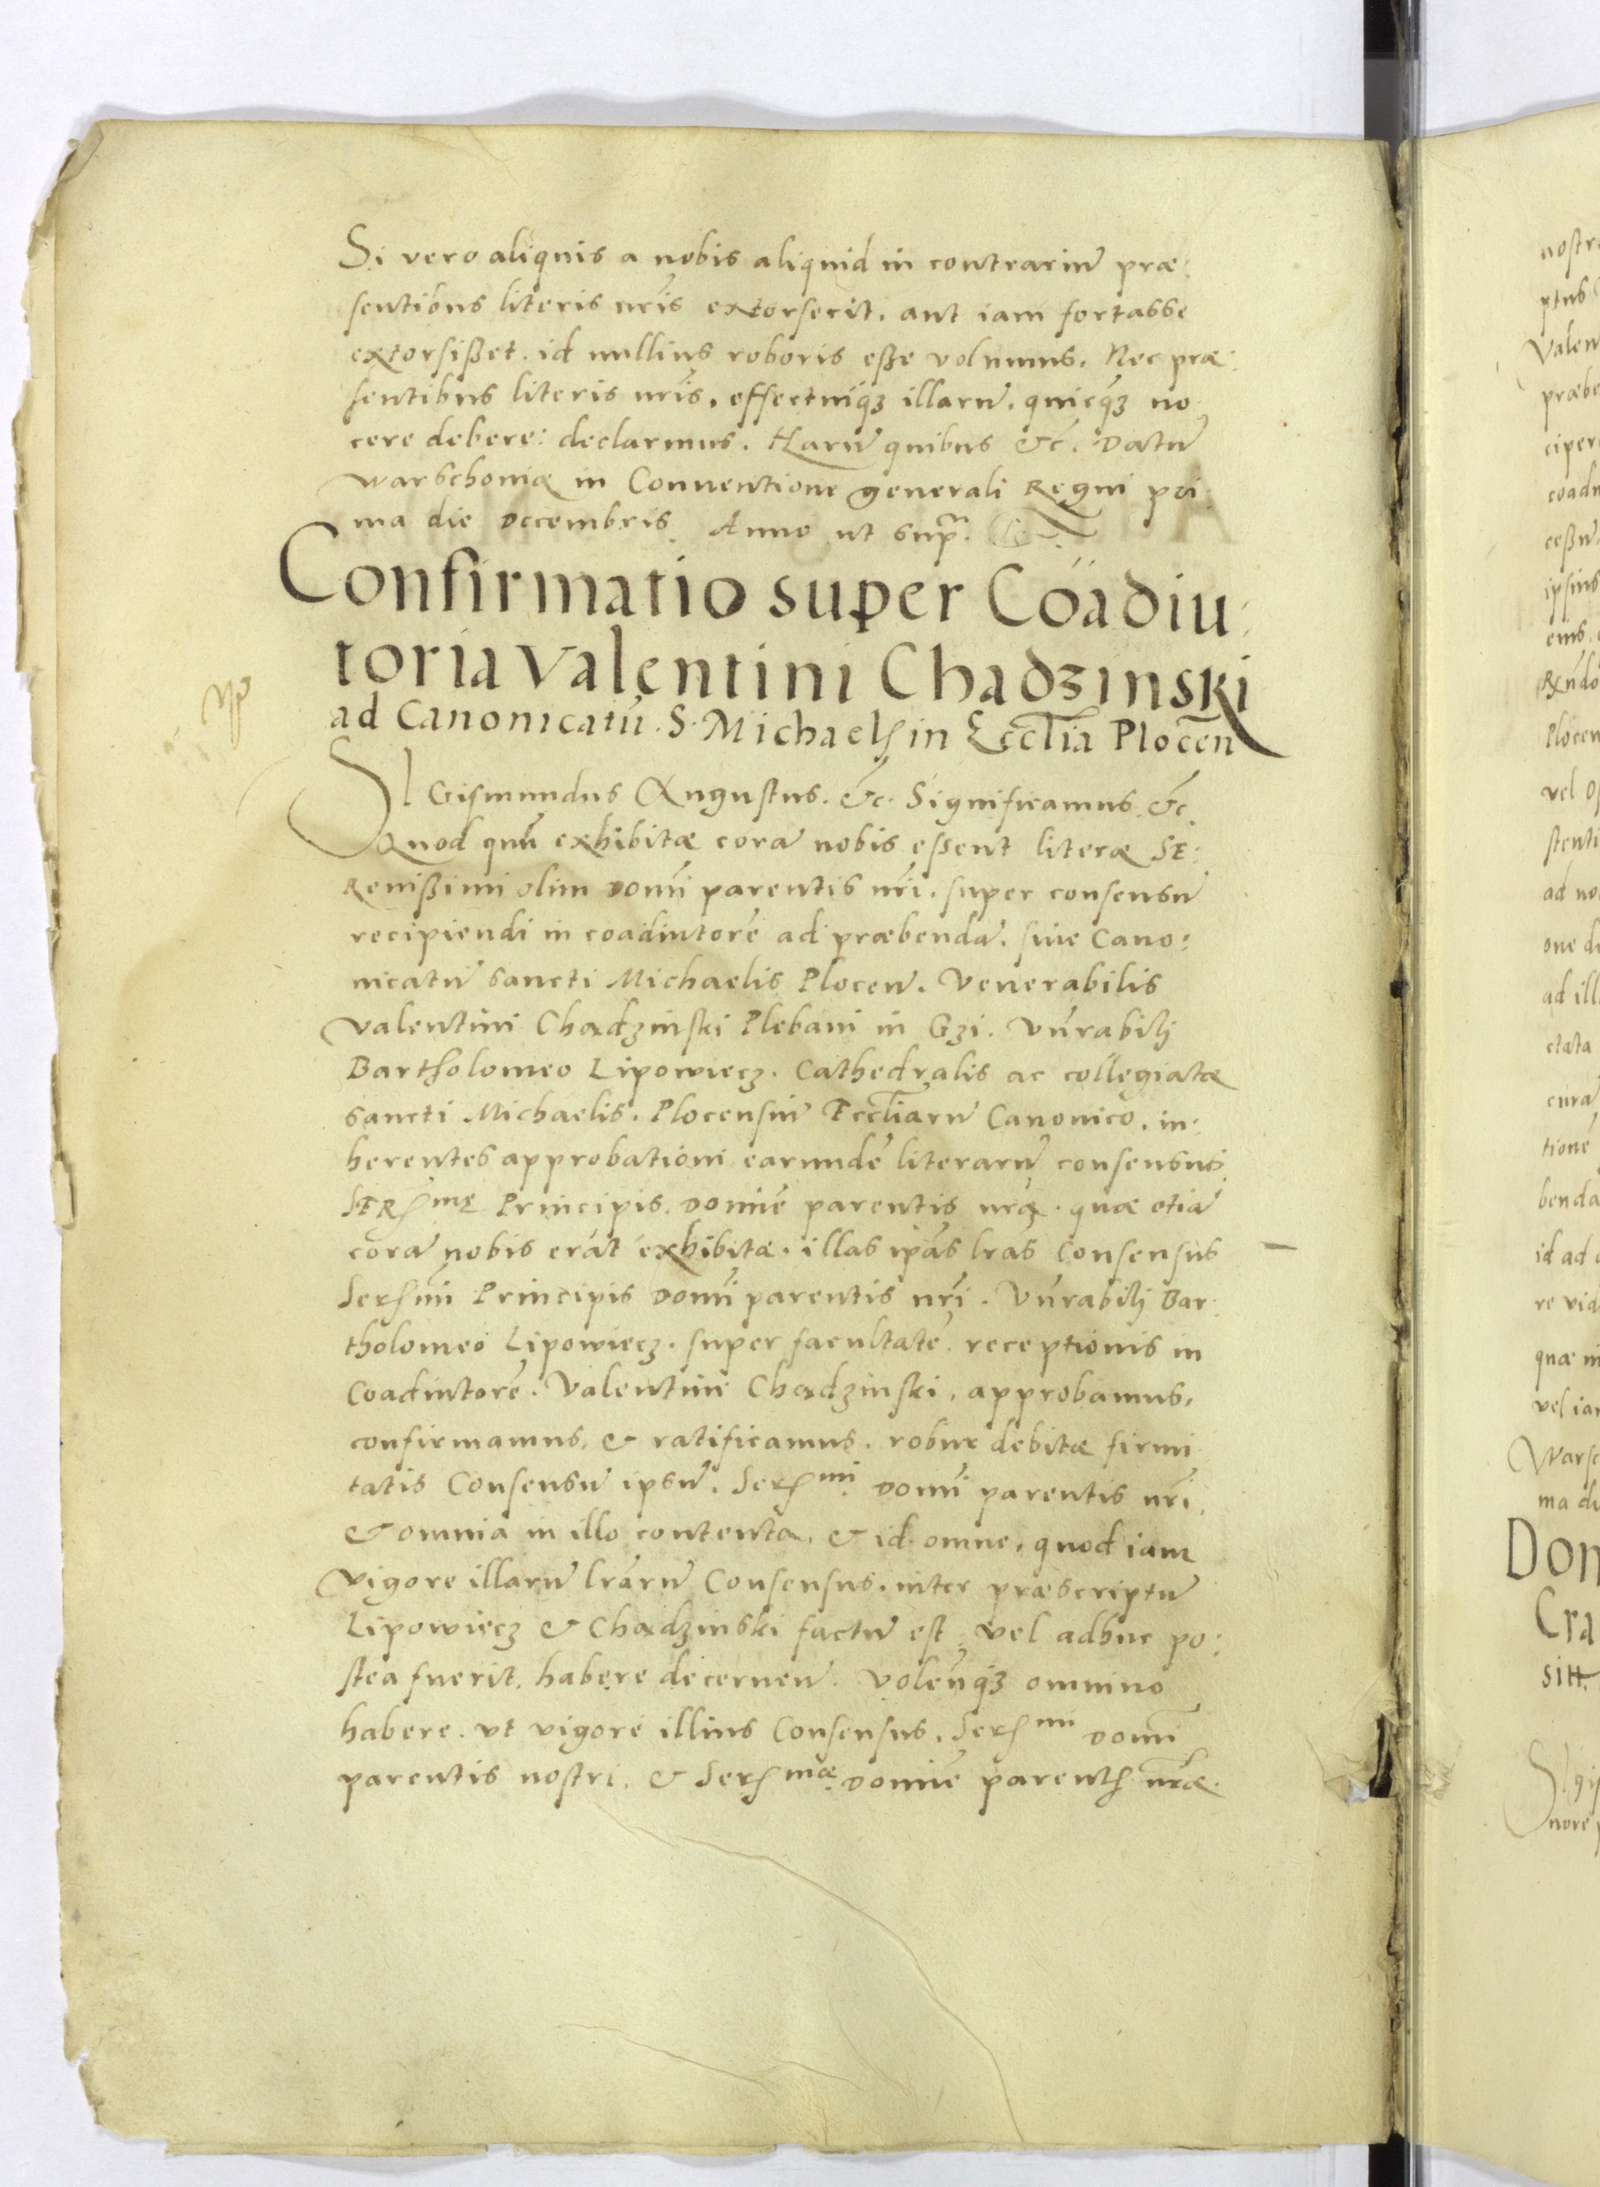 Si vero aliquis a nobis aliquid in contrariū præ:
sentibus literis nr̃is extorserit, aut iam fortasse
extorsißet, id nullius roboris eße volumus, Nec præ:
sentibus literis nr̃is, effectuiq₃ illarū, quicq̃₃ no
cere debere: declarmus. Harū quibus &c̃. Datū
Warschoviæ in Conventione generali Regni pri:
ma die Decembris. Anno ut supr̃.
Confirmatio super Coadiu:
toria Valentini Chadzinski
ad Canonicatū S. Michaelꝭ in Eccl̃ia Plocen̄
SIGismundus Augustus. &c̃. Significamus &c̃.
Quod quū exhibitæ corā nobis essent literæ SE:
Renißimi olim Domī parentis nr̃i, super consensu
recipiendi in coadiutorē ad præbendā, siue Cano:
nicatū sancti Michaelis Plocen̄. Venerabilis
Valentini Chadzinski Plebani in Gzi. Vn̄rabilj
Bartholomeo Lipowiecz. Cathedralis ac collegiatæ
sancti Michaelis. Plocensiū Eccl̃iarū Canonico, in:
herentes approbationi earundē literarū consensus
SERꝭmę Principis, Domīe parentis nr̃æ. quæ etiā
corā nobis erāt exhibitæ, illas ip̄as lr̃as Consensus
Serꝭmi Principis Domī parentis nr̃i. Vn̄rabilj Bar
tholomeo Lipowiecz. super facultatē receptionis in
Coadiutorē. Valentini Chadzinski, approbamus,
confirmamus, & ratificamus, robur debitæ firmi
tatis Consensū ipsū. Serꝭmi Domī parentis nr̃i,
& omnia in illo contenta, & id omne, quod iam
vigore illarū lr̃arū Consensus, inter præscriptū
Lipowiecz & Chadzinski factū est vel adhuc po:
stea fuerit, habere decernen̄. Volen̄q₃ omnino
habere, ut vigore illius Consensus, Serꝭmi Domī
parentis nostri, & Serꝭmæ Domīe parentꝭ nr̃æ.